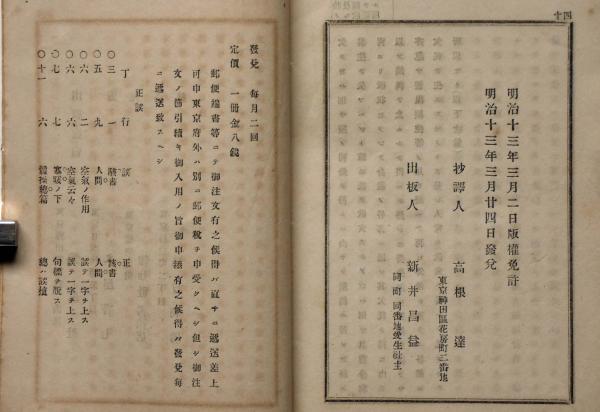 四十
明治十三年三月二日版權免許
明治十三年三月廿四日發兌
抄譯人 高根達
東京神田區花房町二番地
出板人 新井昌益
同町同番地愛生社主
發兌 毎月二回
定價 一册金八錢
郵便端書等ニテ御注文有之候得バ直サニ遞送差上
可申東京府外ハ別ニ郵便税ヲ申受クヘシ但シ御注
文ノ節引續キ御入用ノ旨御申越有之候得ハ發兌毎
ニ遞送致スヘシ
正誤
丁 行 誤 正
〇三 一 該書
〇五 九 人間 人間
〇六 二 空氣ノ作用 誤テ一字ヲ上ス
〇六 六 空氣云々 誤テ一字ヲ上ス
〇七 七 ノ下 句標ヲ脱ス
〇十一 六 總ハ誤植